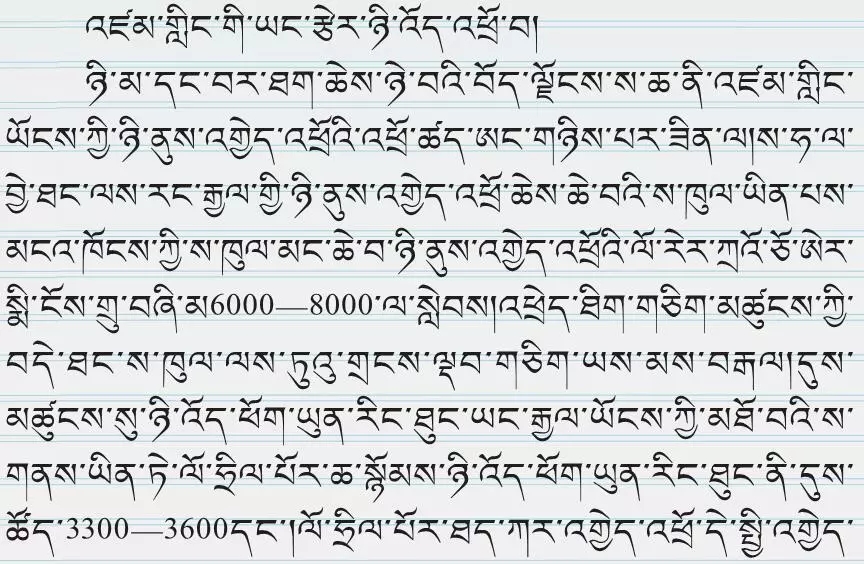 འཛམ་གླིང་གི་ཡང་རྩེར་ཉི་འོད་འཕྲོ་བ།
ཉི་མ་དང་བར་ཐག་ཆེས་ཉེ་བའི་བོད་ལྗོངས་ས་ཆ་ནི་འཛམ་གླིང་
ཡོངས་ཀྱི་ཉི་ནུས་འགྱེད་འཕྲོའི་འཕྲོ་ཚད་ཨང་གཉིས་པར་ཟིན་ལ།ས་ཧ་ལ་
བྱེ་ཐང་ལས་རང་རྒྱལ་གྱི་ཉི་ནུས་འགྱེད་འཕྲོ་ཆེས་ཆེ་བའི་ས་ཁུལ་ཡིན་པས་
མངའ་ཁོངས་ཀྱི་ས་ཁུལ་མང་ཆེ་བ་ཉི་ནུས་འགྱེད་འཕྲོའི་ལོ་རེར་ཀྲའོ་ཅོ་ཨེར་
སྨི་ངོས་གྲུ་བཞི་མ6000—8000་ལ་སླེབས།འཕྲེད་ཐིག་གཅིག་མཚུངས་ཀྱི་
བདེ་ཐང་ས་ཁུལ་ལས་ཏུའུ་གྲངས་ལྡབ་གཅིག་ཡས་མས་བརྒལ།དུས་
མཚུངས་སུ་ཉི་འོད་ཕོག་ཡུན་རིང་ཐུང་ཡང་རྒྱལ་ཡོངས་ཀྱི་མཐོ་བའི་ས་
གནས་ཡིན་ཏེ་ལོ་ཧྲིལ་པོར་ཆ་སྙོམས་ཉི་འོད་ཕོག་ཡུན་རིང་ཐུང་ནི་དུས་
ཚོད་3300—3600དང་།ལོ་ཧྲིལ་པོར་ཐད་ཀར་འགྱེད་འཕྲོ་དེ་སྤྱི་འགྱེད་